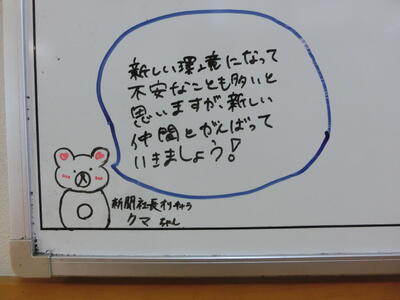 新しい環境になって
不安なことも多いと
思いますが、新しい
仲間とがんばって
いきましょう!
新聞社長オリキャラ
クマちゃん